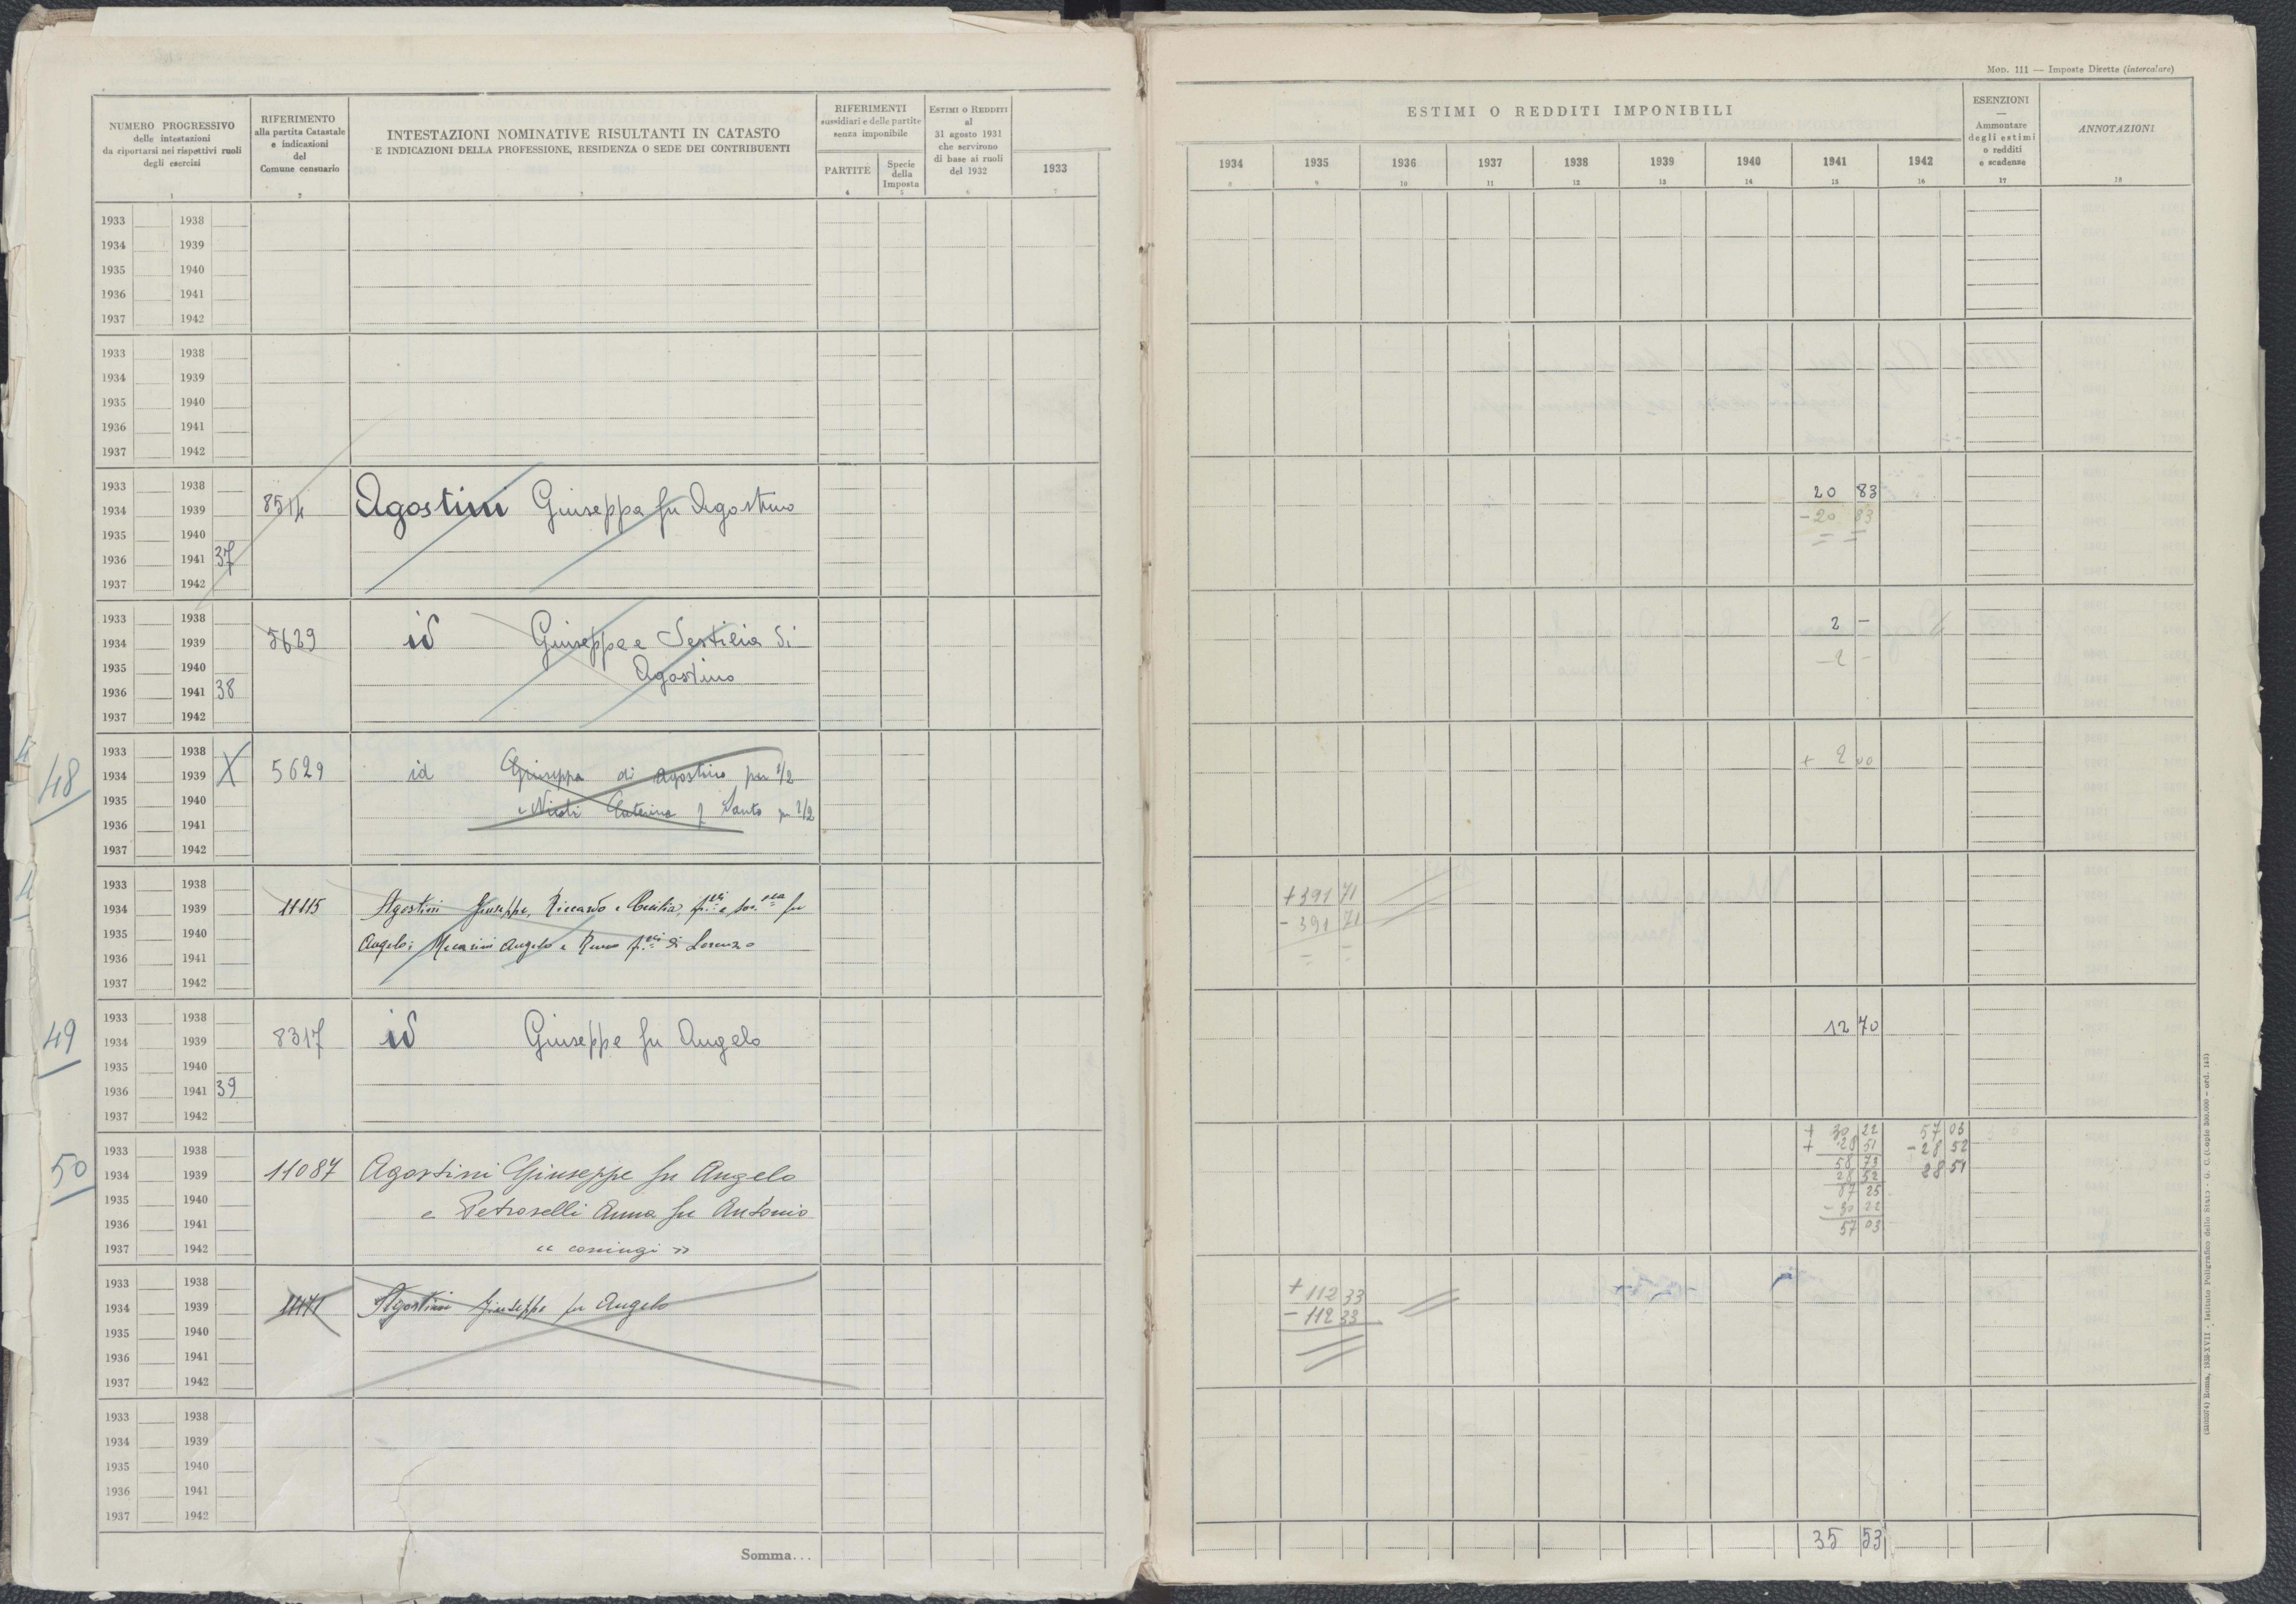 Mod. 111 — Imposte Dirette (intercalare)
NUMERO PROGRESSIVO
delle intestazioni
da riportarsi nei rispettivi ruoli
degli esercizi
1
RIFERIMENTO
alla partita Catastale
e indicazioni
del
Comune censuario
2
INTESTAZIONI NOMINATIVE RISULTANTI IN CATASTO
E INDICAZIONI DELLA PROFESSIONE, RESIDENZA O SEDE DEI CONTRIBUENTI
3
RIFERIMENTI
sussidiari e delle partite
senza imponibile
PARTITE
4
Specie
della
Imposta
5
Estimi o Redditi
al
31 agosto 1931
che servirono
di base ai ruoli
del 1932
6
1933
7
ESTIMI O REDDITI IMPONIBILI
1934 1935 1936 1937 1938 1939 1940 1941 1942
8 9 10 11 12 13 14 15 16
ESENZIONI
—
Ammontare
degli estimi
o redditi
e scadenze
17
ANNOTAZIONI
18
1933 1938
1934 1939
1935 1940
1936 1941
1937 1942
1933 1938
1934 1939
1935 1940
1936 1941
1937 1942
1933 1938 20 83
1934 1939 8514 Agostini Giuseppa fu Agostino
1935 1940 - 20 83
1936 1941 37 = =
1937 1942
1933 1938 2 -
1934 1939 5629 id Giuseppa e Sestilia di
1935 1940 Agostino - 2 -
1936 1941 38
1937 1942
48
1933 1938 X
1934 1939 5629 id Giuseppa di Agostino per 1/2 + 2 00
1935 1940 e Nicoli Caterina f Santo per 1/2
1936 1941
1937 1942
1933 1938 + 391 71
1934 1939 11115 Agostini Giuseppe, Riccardo e
1935 1940 Angelo; Angelo e di Lorenzo - 391 71
1936 1941 = =
1937 1942
49
1933 1938
1934 1939 8317 id Giuseppe fu Angelo 12 70
1935 1940
1936 1941 39
1937 1942
50
1933 1938 + 30 22 57 03
+ 28 51 - 28 52
1934 1939 11087 Agostini Giuseppe fu Angelo 58 73 28 51
28 52
1935 1940 e Petroselli Anna fu Antonio 87 25
1936 1941 - 30 22
1937 1942 « coniugi » 57 03
1933 1938 + 112 33
1934 1939 11171 Agostini Giuseppe fu Angelo - 112 33
1935 1940
1936 1941
1937 1942
1933 1938
1934 1939
1935 1940
1936 1941
1937 1942
Somma... 35 53